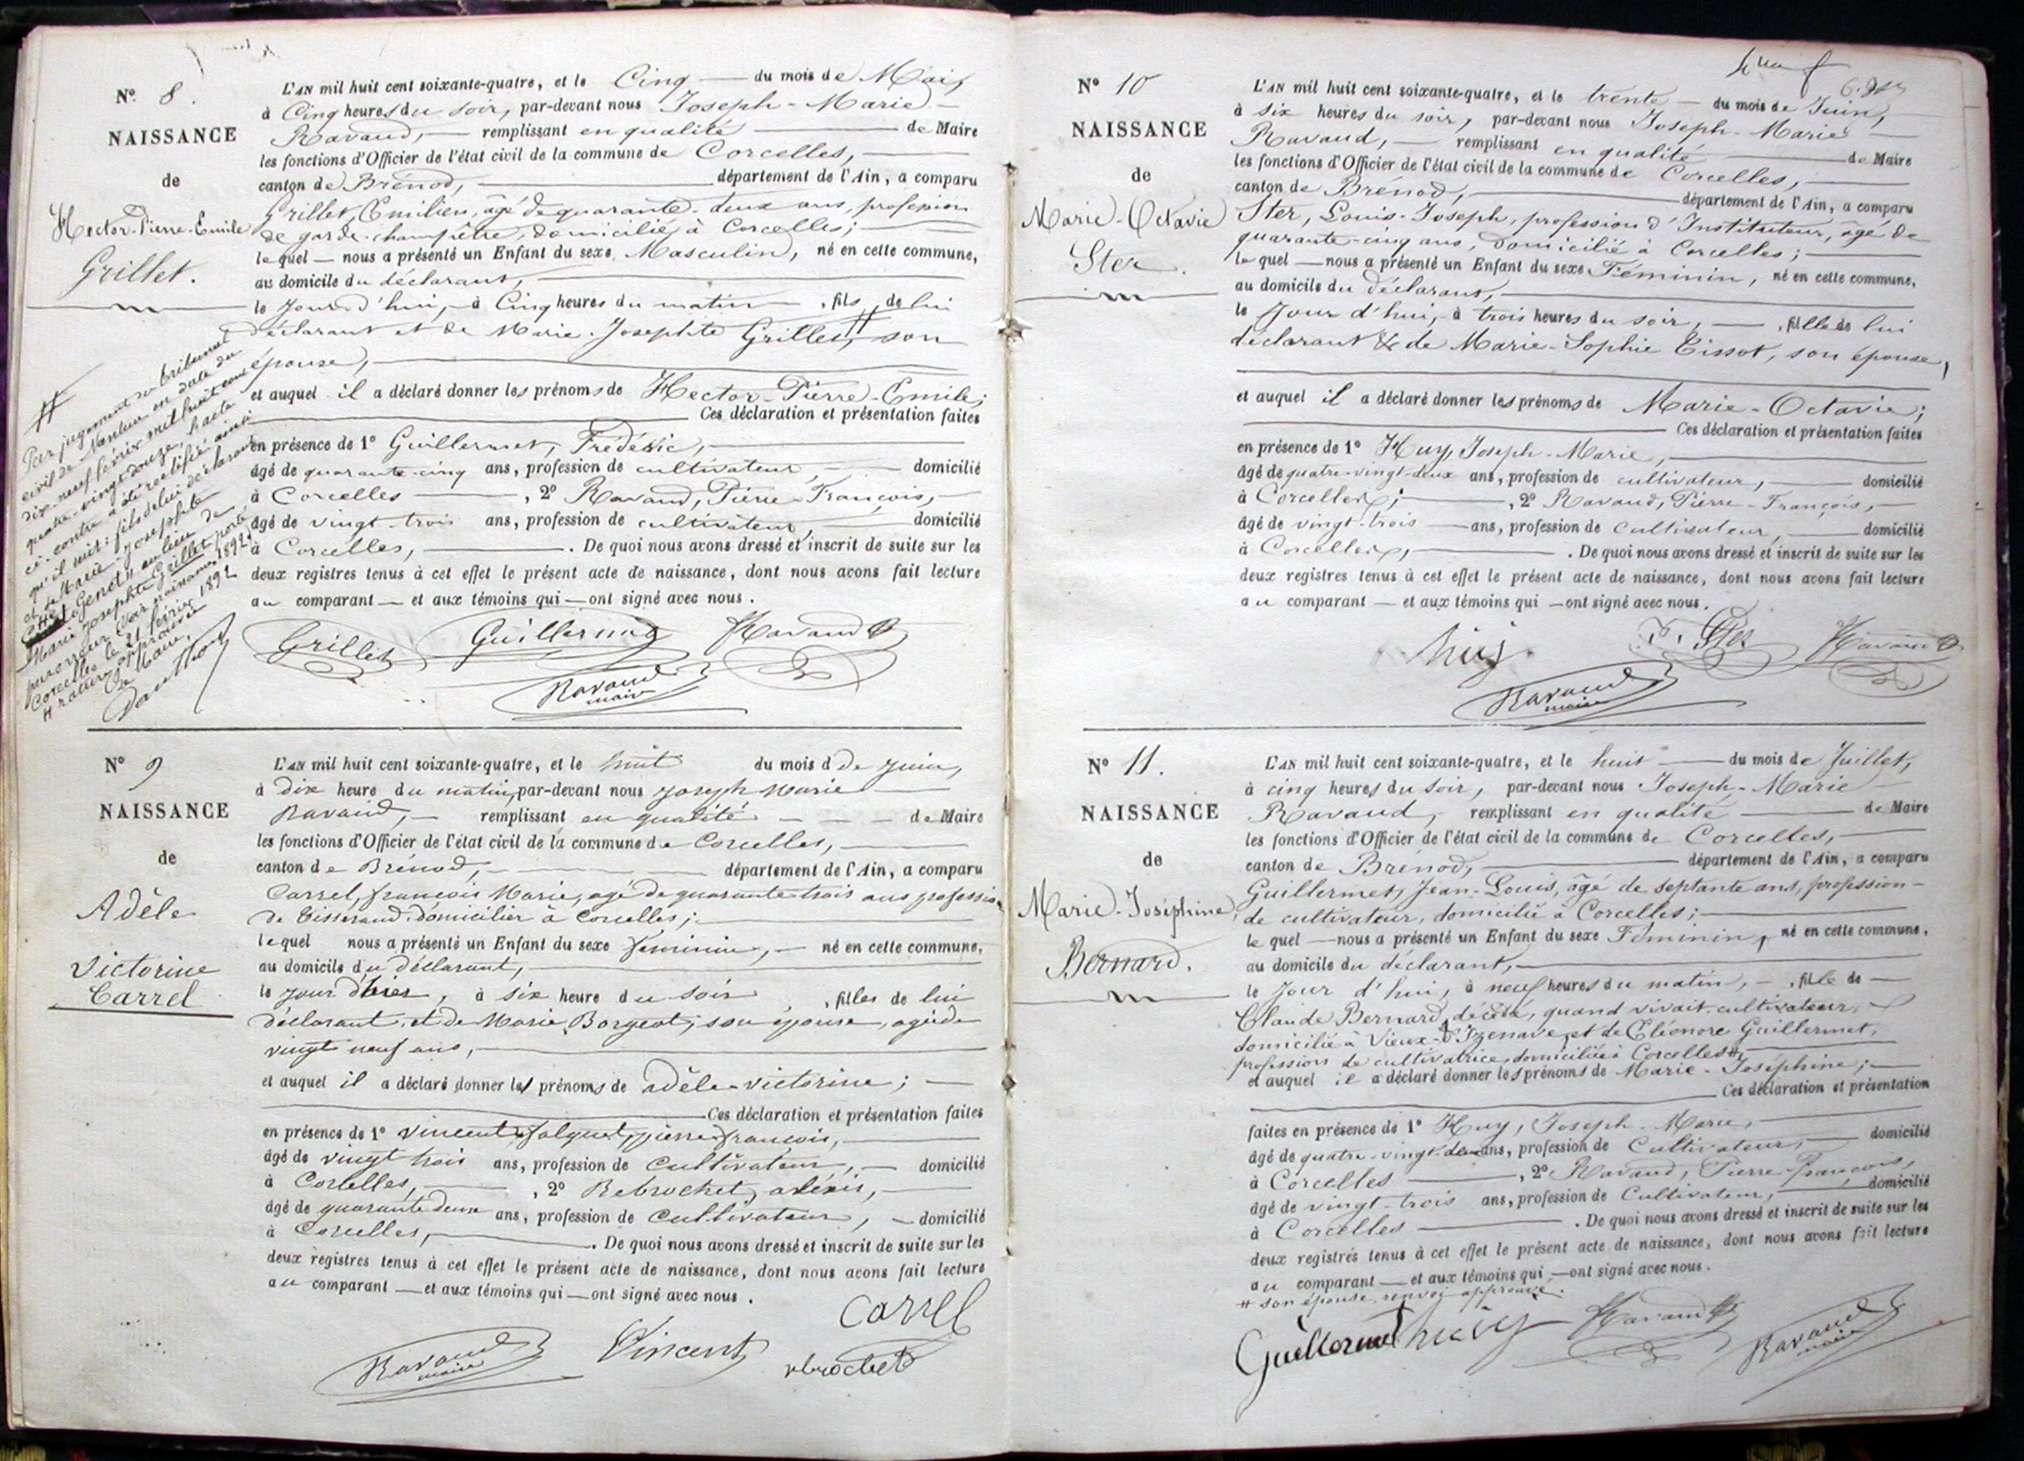 N° 8.
NAISSANCE
de
Hector-Pierre-Emile
Grillet.
L'AN mil huit cent soixante-quatre, et le Cinq du mois de Mai,
à Cinq heures du soir, par-devant nous Joseph-Marie
Ravaud, remplissant en qualité de Maire
les fonctions d'Officier de l'état civil de la commune de Corcelles,
canton de Brénod, département de l'Ain, a comparu
Grillet, Emilien, âgé de quarante-deux ans, profession
de garde-champêtre, domicilié à Corcelles;
lequel nous a présenté un Enfant du sexe Masculin, né en cette commune,
au domicile du déclarant,
le Jour d'hui, à Cinq heures du matin, fils de lui
déclarant et de Marie-Josephte Grillet, # son
épouse,
et auquel il a déclaré donner les prénoms de Hector-Pierre-Emile;
Ces déclaration et présentation faites
en présence de 1° Guillermet, Frédéric,
âgé de quarante-cinq ans, profession de cultivateur, domicilié
à Corcelles, 2° Ravaud, Pierre-François,
âgé de vingt-trois ans, profession de cultivateur, domicilié
à Corcelles, . De quoi nous avons dressé et inscrit de suite sur les
deux registres tenus à cet effet le présent acte de naissance, dont nous avons fait lecture
au comparant et aux témoins qui ont signé avec nous.
#
Par jugement du tribunal
civil de Nantua en date du
dix-neuf février mil huit cent
quatre-vingt douze, l'acte
ci-contre a été rectifié ainsi
qu'il suit: fils de lui déclarant
et de Marie-Josephte
Genet, au lieu de
Marie Josephte Grillet porté
par erreur
Corcelles le 21 février 1892
# rature approuvée
Le Maire,
Grillet Guillermet Ravaud
Ravaud
maire
N° 9
NAISSANCE
de
Adèle
Victorine
Carrel
L'AN mil huit cent soixante-quatre, et le huit du mois d de juin,
à dix heure du matin, par-devant nous joseph marie
Ravaud, remplissant en qualité de Maire
les fonctions d'Officier de l'état civil de la commune de Corcelles,
canton de Brénod, département de l'Ain, a comparu
Carrel, françois Marie, agé de quarante trois ans profession
de tisserand, domicilier à Corcelles;
lequel nous a présenté un Enfant du sexe feminin, né en cette commune,
au domicile du déclarant,
le jour d'hier, à six heure du soir, filles de lui
déclarant, et de Marie Borgeot, son épouse, agée de
vingt neuf ans,
et auquel il a déclaré donner les prénoms de adèle-victorine;
Ces déclaration et présentation faites
en présence de 1° Vincent falquet, pierre françois,
âgé de vingt trois ans, profession de Cultivateur, domicilié
à Corcelles, 2° Rebrochet, alexis,
âgé de quarante deux ans, profession de Cultivateur, domicilié
à Corcelles, . De quoi nous avons dressé et inscrit de suite sur les
deux registres tenus à cet effet le présent acte de naissance, dont nous avons fait lecture
au comparant et aux témoins qui ont signé avec nous.
Carrel
Ravaud
maire
Vincent
N° 10
NAISSANCE
de
Marie-Octavie
Ster.
L'AN mil huit cent soixante-quatre, et le trente du mois de Juin,
à six heures du soir, par-devant nous Joseph-Marie
Ravaud, remplissant en qualité de Maire
les fonctions d'Officier de l'état civil de la commune de Corcelles,
canton de Brénod, département de l'Ain, a comparu
Ster, Louis-Joseph, profession d'Instituteur, âgé de
quarante-cinq ans, domicilié à Corcelles;
lequel nous a présenté un Enfant du sexe Féminin, né en cette commune,
au domicile du déclarant,
le Jour d'hui, à trois heures du soir, fille de lui
déclarant & de Marie-Sophie Tissot, son épouse,
et auquel il a déclaré donner les prénoms de Marie-Octavie;
Ces déclaration et présentation faites
en présence de 1° Huy, Joseph-Marie,
âgé de quatre-vingt-deux ans, profession de cultivateur, domicilié
à Corcelles; 2° Ravaud, Pierre-François,
âgé de vingt-trois ans, profession de Cultivateur, domicilié
à Corcelles, . De quoi nous avons dressé et inscrit de suite sur les
deux registres tenus à cet effet le présent acte de naissance, dont nous avons fait lecture
au comparant et aux témoins qui ont signé avec nous.
huy Ster Ravaud
Ravaud
maire
N° 11.
NAISSANCE
de
Marie-Joséphine
Bernard.
L'AN mil huit cent soixante-quatre, et le huit du mois de Juillet,
à cinq heures du soir, par-devant nous Joseph-Marie
Ravaud, remplissant en qualité de Maire
les fonctions d'Officier de l'état civil de la commune de Corcelles,
canton de Brénod, département de l'Ain, a comparu
Guillermet, Jean-Louis, âgé de septante ans, profession
de cultivateur, domicilié à Corcelles;
lequel nous a présenté un Enfant du sexe Féminin, né en cette commune,
au domicile du déclarant,
le Jour d'hui, à neuf heures du matin, fille de
Claude Bernard, décédé, quand vivait cultivateur,
domicilié à Vieux-d'Izenave, et de Eléonore Guillermet,
profession de cultivatrice, domiciliée à Corcelles #
et auquel il a déclaré donner les prénoms de Marie-Joséphine;
Ces déclaration et présentation
faites en présence de 1° Huy, Joseph-Marie,
âgé de quatre-vingt-deux ans, profession de Cultivateur, domicilié
à Corcelles, 2° Ravaud, Pierre-François,
âgé de vingt-trois ans, profession de Cultivateur, domicilié
à Corcelles . De quoi nous avons dressé et inscrit de suite sur les
deux registres tenus à cet effet le présent acte de naissance, dont nous avons fait lecture
au comparant et aux témoins qui ont signé avec nous.
# son épouse, renvoi approuvé.
Guillermet huy Ravaud Ravaud
maire